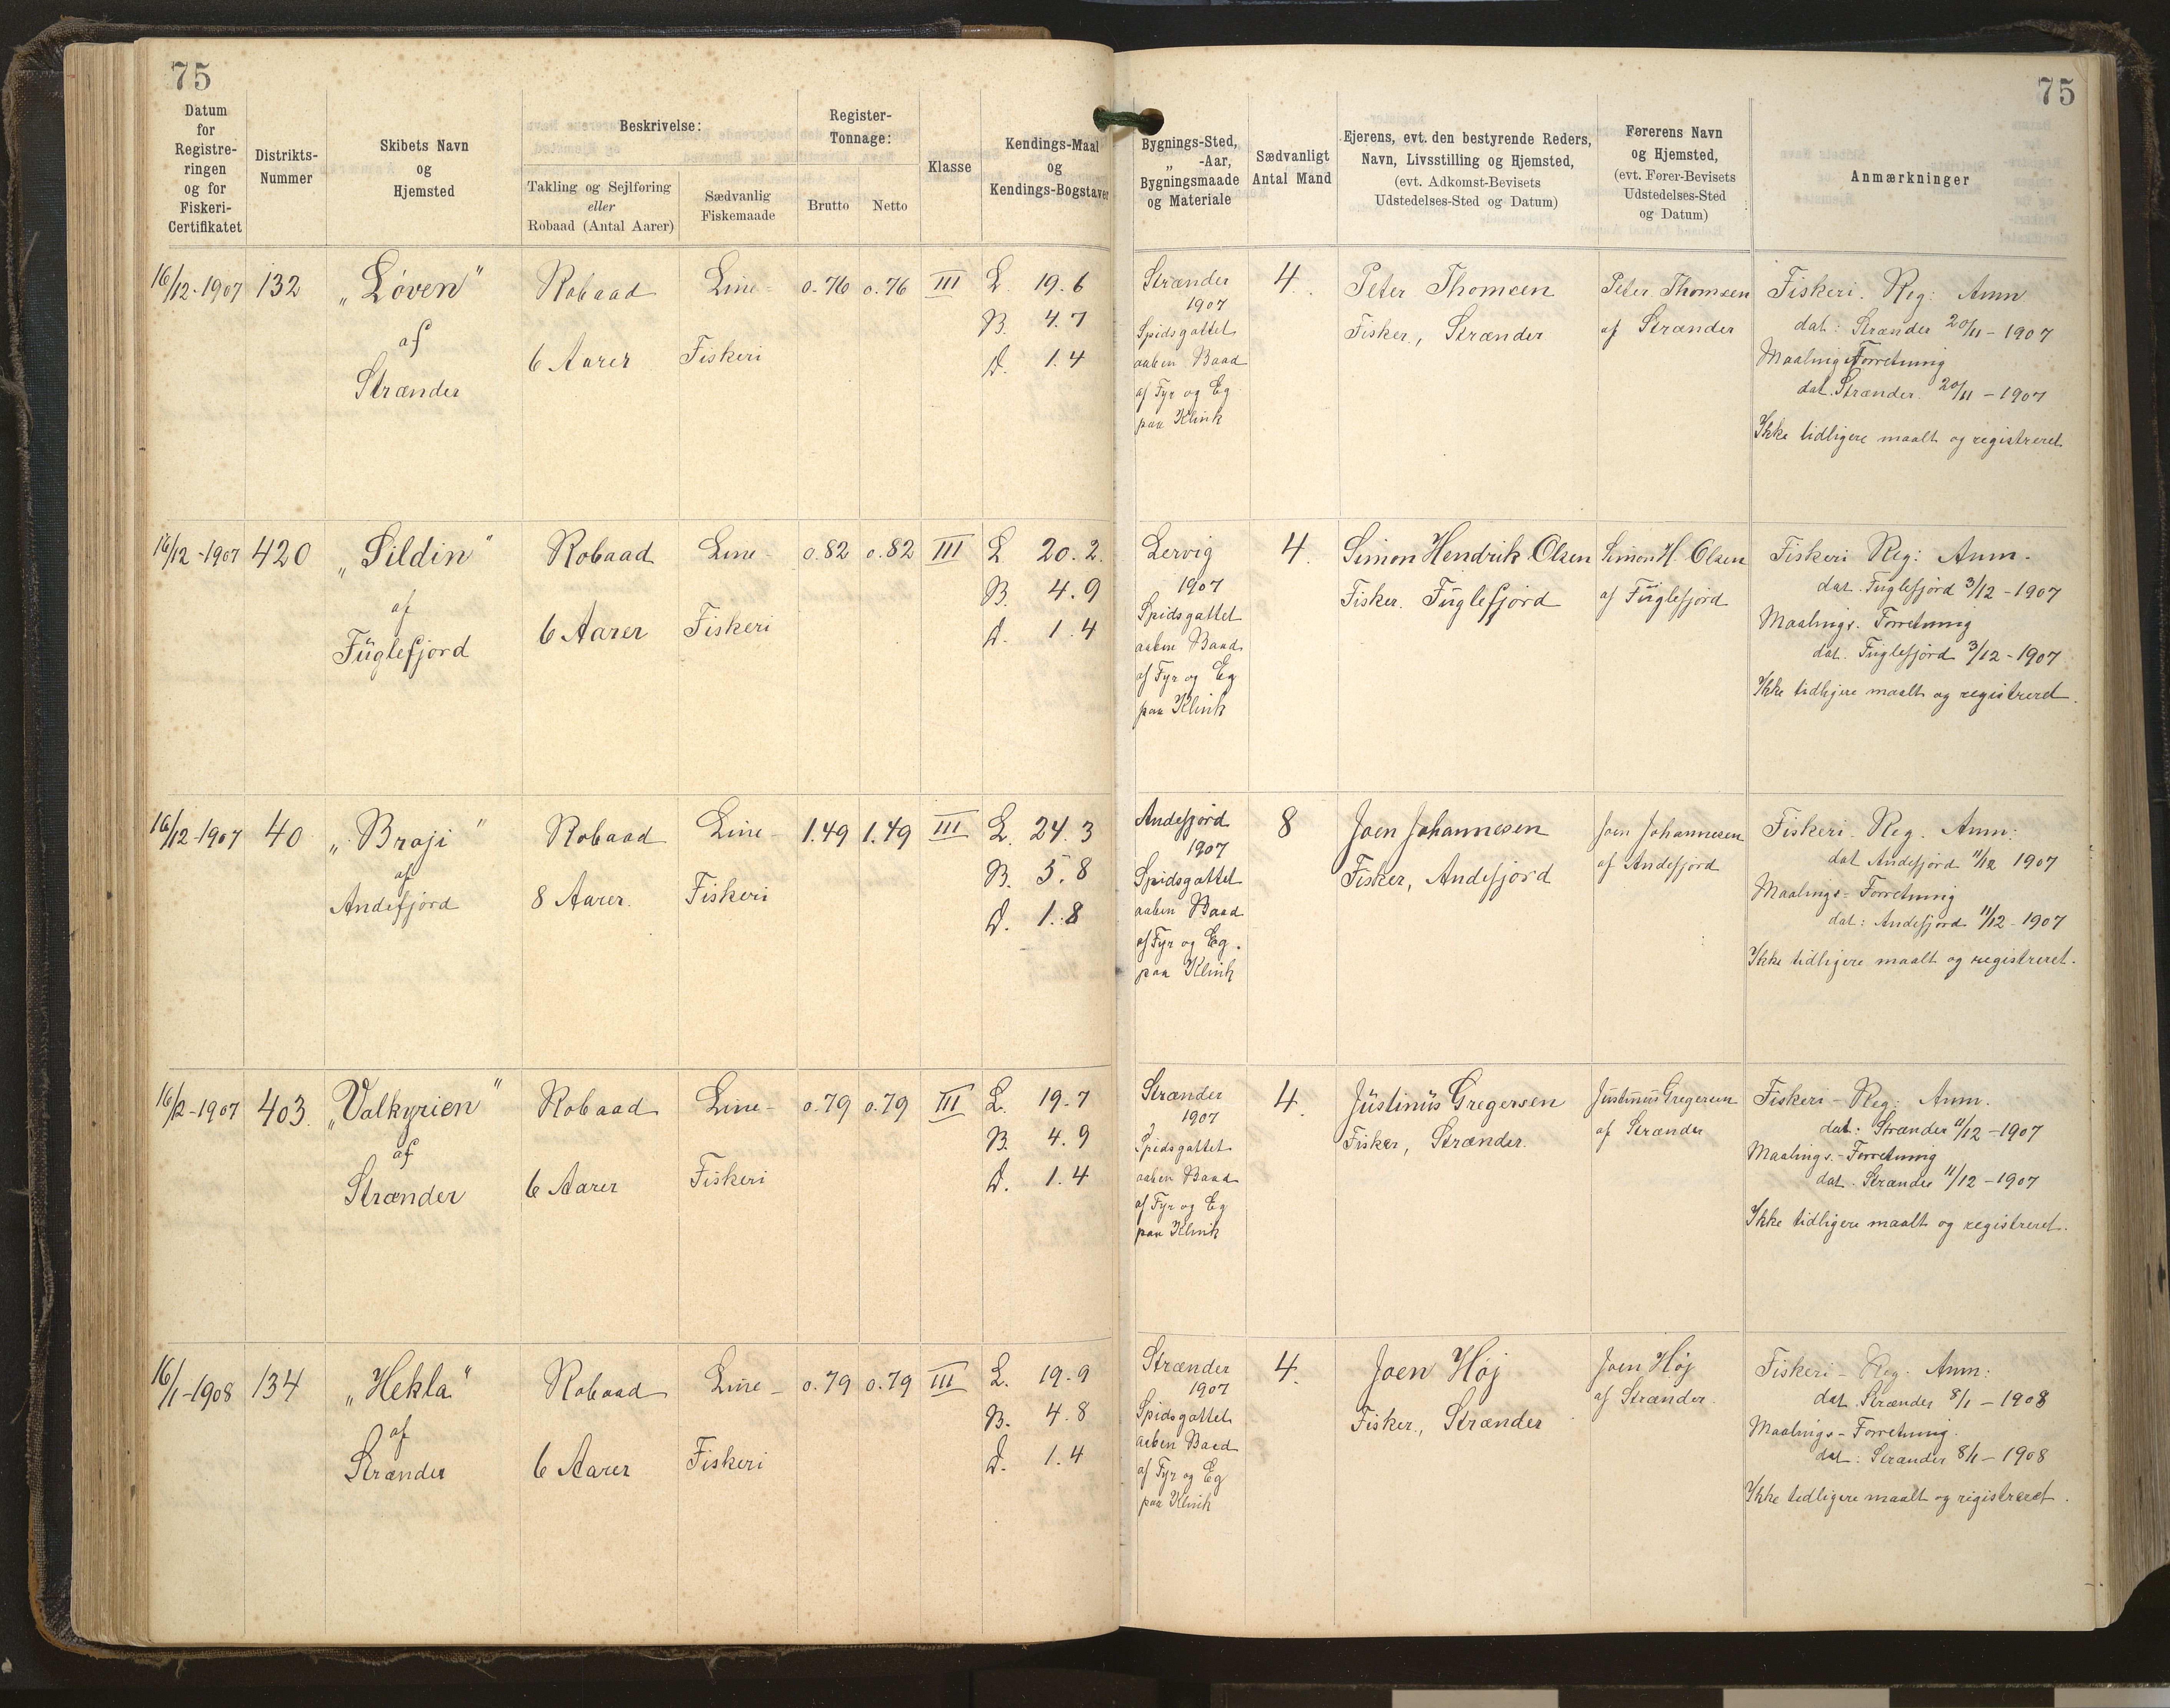 75
75
Datum
for
Registre-
ringen
og for
Fiskeri-
Certifikatet
Distrikts-
Nummer
Skibets Navn
og
Hjemsted
Beskrivelse:
Takling og Sejlføring
eller
Robaad (Antal Aarer)
Sædvanlig
Fiskemaade
Register-
Tonnage:
Brutto
Netto
Klasse
Kendings-Maal
og
Kendings-Bogstaver
Bygnings-Sted,
„ -Aar,
Bygningsmaade
og Materiale
Sædvanligt
Antal Mand
Ejerens, evt. den bestyrende Reders,
Navn, Livsstilling og Hjemsted,
(evt. Adkomst-Bevisets
Udstedelses-Sted og Datum)
Førerens Navn
og Hjemsted,
(evt. Fører-Bevisets
Udstedelses-Sted
og Datum)
Anmærkninger
16/12-1907
132
„Løven"
af
Strænder
Robaad
6 Aarer
Line-
Fiskeri
0.76
0.76
III
L. 19.6
B. 4.7
D. 1.4
Strænder
1907
Spidsgattet
aaben Baad
af Fyr og Eg
paa Klink
4.
Peter Thomsen
Fisker, Strænder
Peter Thomsen
af Strænder
Fiskeri. Reg: Anm
dat: Strænder 20/11-1907
Maalings Forretning
dat. Strænder 20/11-1907
Ikke tidligere maalt og registreret
16/12-1907
420
„Sildin"
af
Fuglefjord
Robaad
6 Aarer
Line-
Fiskeri
0.82
0.82
III
L 20.2.
B. 4.9
D. 1.4
Lervig
1907
Spidsgattet
aaben Baad
af Fyr og Eg
paa Klink
4.
Simon Hendrik Olsen
Fisker. Fuglefjord
Simon H. Olsen
af Fuglefjord
Fiskeri Reg: Anm.
dat. Fuglefjord 3/12-1907
Maalings. Forretning
dat. Fuglefjord 3/12-1907
Ikke tidligere maalt og registreret.
16/12-1907
40
„Braji"
af
Andefjord
Robaad
8 Aarer.
Line-
Fiskeri
1.49
1.49
III
L. 24.3
B. 5.8
D. 1.8
Andefjord
1907
Spidsgattet
aaben Baad
af Fyr og Eg.
paa Klink
8
Joen Johannesen
Fisker, Andefjord
Joen Johannesen
af Andefjord
Fiskeri-Reg. Anm:
dat Andefjord 11/12 1907
Maalings-Forretning
dat: Andefjord 11/12-1907
Ikke tidligere maalt og registreret.
16/12-1907
403.
„Valkyrien"
af
Strænder
Robaad
6 Aarer
Line-
Fiskeri
0.79
0.79
III
L. 19.7
B. 4.9
D. 1.4
Strænder
1907
Spidsgattet
aaben Baad
af Fyr og Eg
paa Klink
4.
Justinus Gregersen
Fisker, Strænder.
Justinus Gregersen
af Strænder
Fiskeri-Reg: Anm.
dat. Strænder 11/12-1907
Maalings.-Forretning
dat. Strænder 11/12-1907
Ikke tidligere maalt og registreret.
16/1-1908
134
„Hekla"
af
Strænder
Robaad
6 Aarer
Line-
Fiskeri
0.79
0.79
III
L. 19.9
B. 4.8
D. 1.4
Strænder
1907
Spidsgattet
aaben Baad
af Fyr og Eg
paa Klink
4.
Joen Høj
Fisker, Strænder
Joen Høj
af Strænder.
Fiskeri-Reg. Anm:
dat. Strænder 8/1-1908
Maalings-Forretning.
dat: Strænder 8/1-1908
Ikke tidligere maalt og registreret.